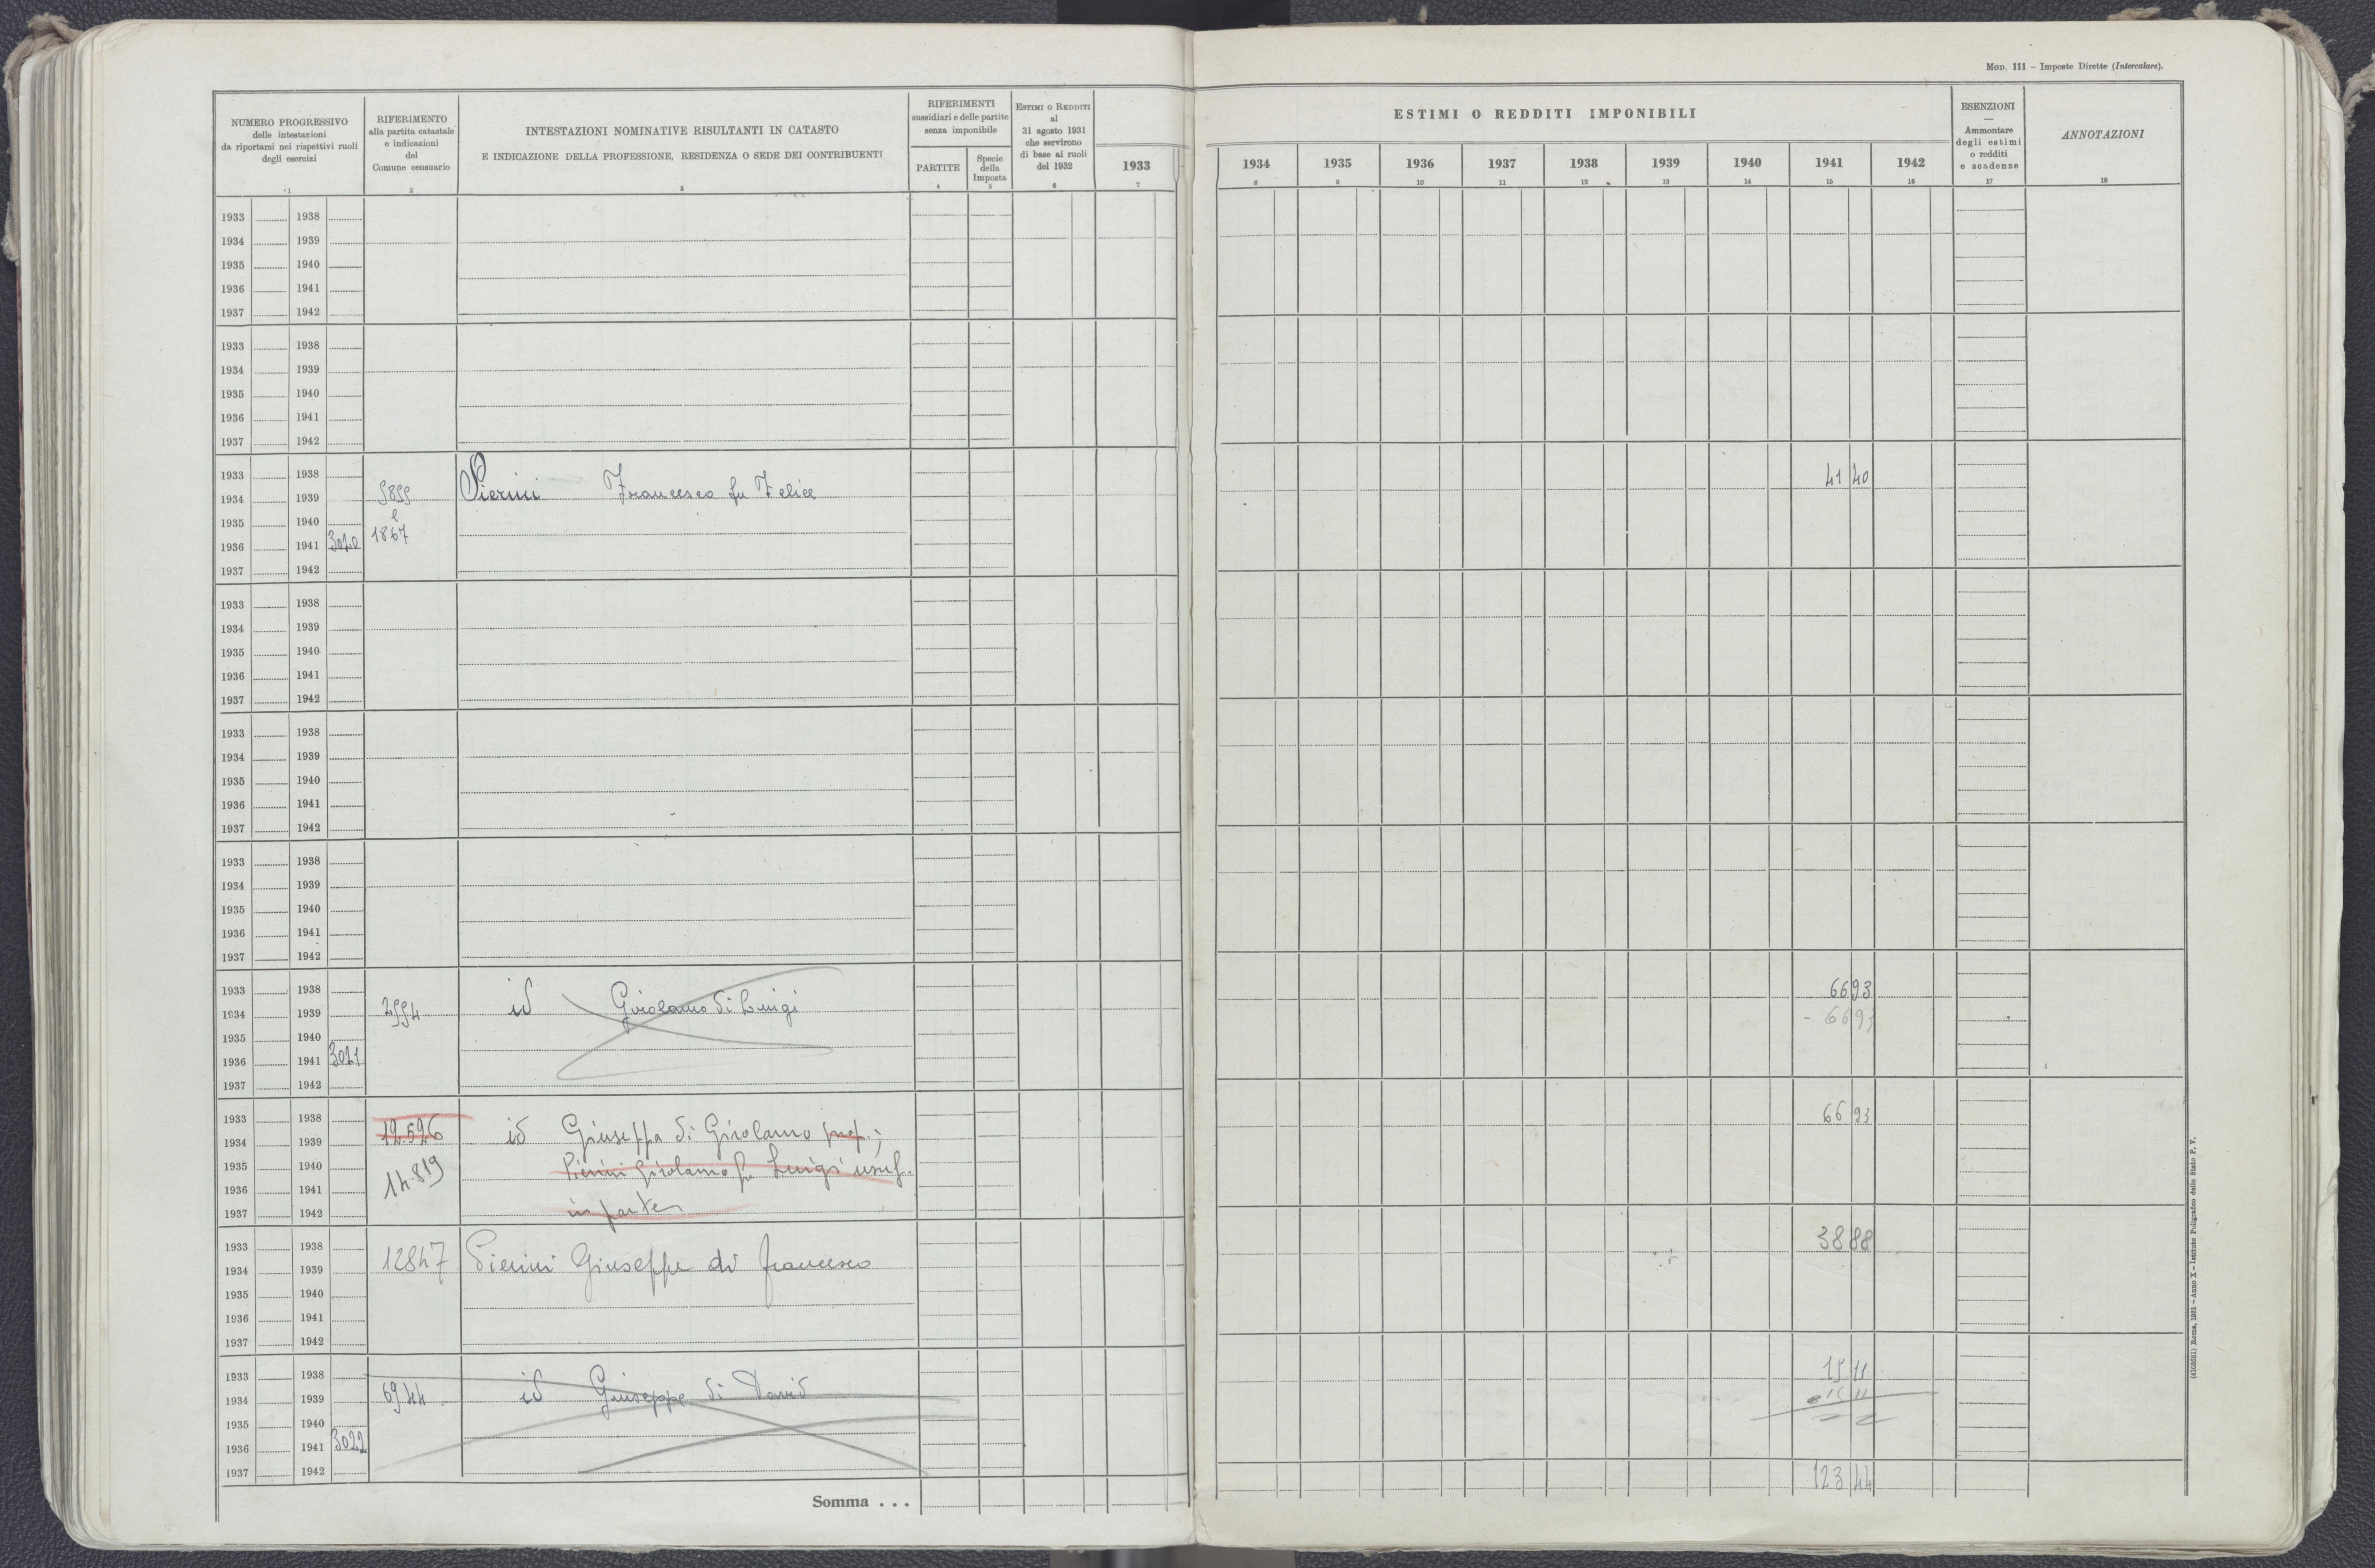 MOD. 111 – Imposte Dirette (Intercalare).
NUMERO PROGRESSIVO
delle intestazioni
da riportarsi nei rispettivi ruoli
degli esercizi
1
RIFERIMENTO
alla partita catastale
e indicazioni
del
Comune censuario
2
INTESTAZIONI NOMINATIVE RISULTANTI IN CATASTO
E INDICAZIONE DELLA PROFESSIONE, RESIDENZA O SEDE DEI CONTRIBUENTI
3
RIFERIMENTI
sussidiari e delle partite
senza imponibile
PARTITE
4
Specie
della
Imposta
5
ESTIMI O REDDITI
al
31 agosto 1931
che servirono
di base ai ruoli
del 1932
6
1933
7
ESTIMI O REDDITI IMPONIBILI
1934 1935 1936 1937 1938 1939 1940 1941 1942
8 9 10 11 12 13 14 15 16
ESENZIONI
—
Ammontare
degli estimi
o redditi
e scadenze
17
ANNOTAZIONI
18
1933 1938
1934 1939
1935 1940
1936 1941
1937 1942
1933 1938
1934 1939
1935 1940
1936 1941
1937 1942
1933 1938 41 40
1934 1939 Pierini Francesco fu Felice
1935 1940 e
1936 1941 3020 1867
1937 1942
1933 1938
1934 1939
1935 1940
1936 1941
1937 1942
1933 1938
1934 1939
1935 1940
1936 1941
1937 1942
1933 1938
1934 1939
1935 1940
1936 1941
1937 1942
1933 1938 66 93
1934 1939 2994 id Girolamo di Luigi - 66 93
1935 1940
1936 1941 3021
1937 1942
1933 1938 66 93
1934 1939 12.526 id Giuseppa di Girolamo prop.;
1935 1940 Pierini Girolamo fu Luigi usuf.
1936 1941 14.819
1937 1942 in parte
1933 1938 38 88
1934 1939 12847 Pierini Giuseppe di Francesco
1935 1940
1936 1941
1937 1942
1933 1938 15 11
1934 1939 6944 id Giuseppe di David 15 11
1935 1940
1936 1941 3022
1937 1942
Somma . . .
123 44
(4103581) Roma, 1931 – Anno X – Istituto Poligrafico dello Stato P. V.